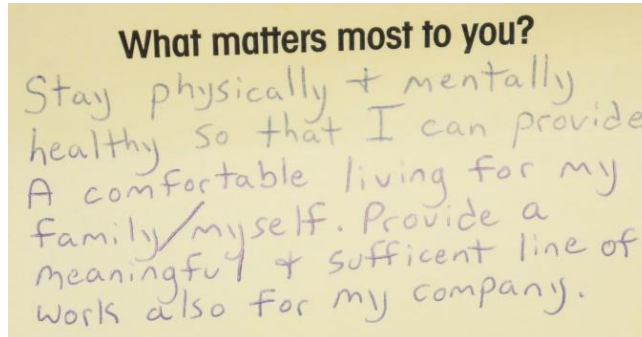 What matters most to you?
Stay physically + mentally
healthy so that I can provide
A comfortable living for my
family/myself. Provide a
meaningful + sufficent line of
work also for my company.